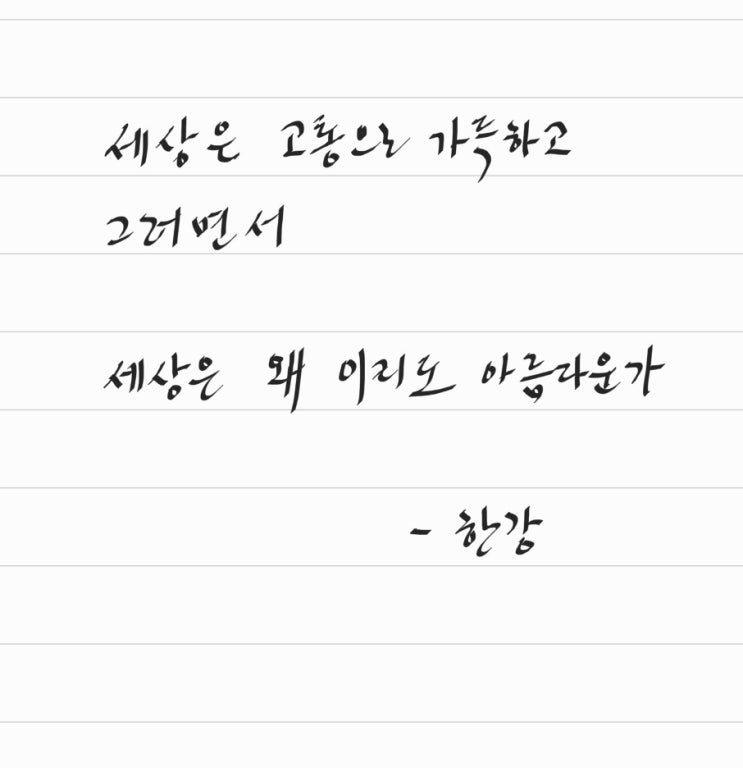 세상은 고통으로 가득하고
그러면서
세상은 왜 이리도 아름다운가
- 한강